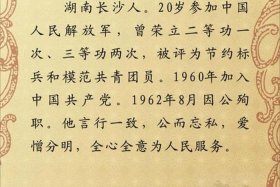 湖南长沙人。20岁参加中国
人民解放军，曾荣立二等功一
次、三等功两次，被评为节约标
兵和模范共青团员。1960年加入
中国共产党。1962年8月因公殉
职。他言行一致，公而忘私，爱
憎分明，全心全意为人民服务。